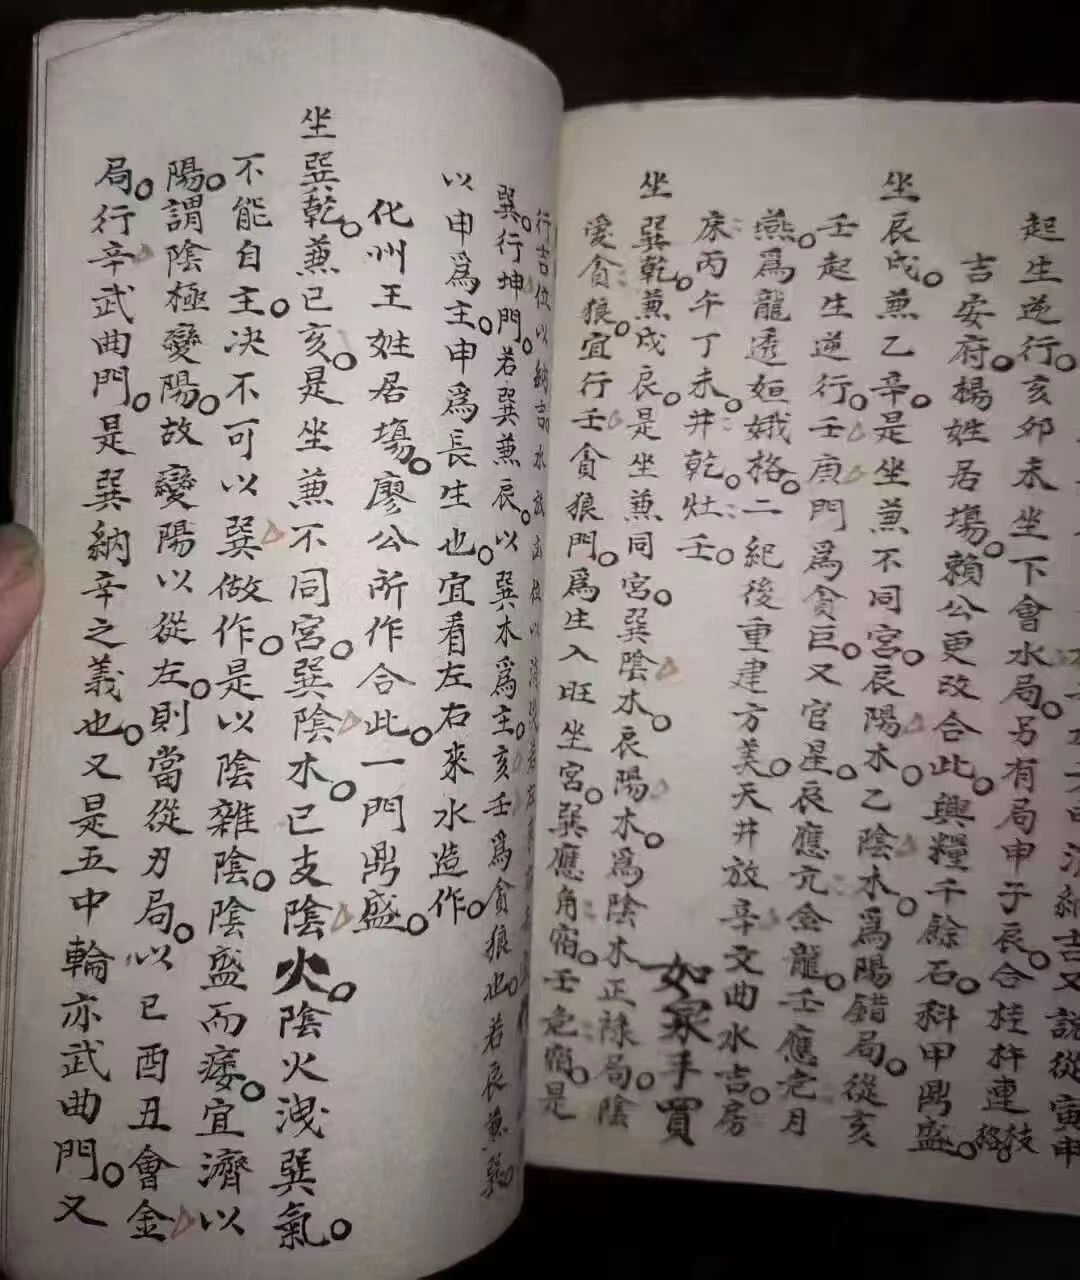 起生逆行。亥卯未坐下會水局。另有局申子辰。合桂杵連枝格。
吉安府。楊姓居塲。賴公更改合此。興糧千餘石。科甲鼎盛。
坐辰戌。兼乙辛。是坐兼不同宮。辰陽木。乙陰木。爲陽錯局。從亥
壬起生逆行。壬庚門爲貪巨。又官星。辰應亢金龍。壬應危月
燕。爲龍透姮娥格。二紀後重建方美。天井放辛文曲水吉。房
床丙午丁未。井乾。灶壬。
如家手買
坐巽乾。兼戌辰。是坐兼同宮。巽陰木。辰陽木。爲陰木正祿局。陰
愛貪狼。宜行壬貪狼門。爲生入旺坐宮。巽應角宿。壬危宿。是
行吉位以納吉水放
巽。行坤門。若巽兼辰。以巽木爲主。亥壬爲貪狼也。若辰兼巽。
以申爲主。申爲長生也。宜看左右來水造作。
化州王姓居塲。廖公所作合此。一門鼎盛。
坐巽乾。兼已亥。是坐兼不同宮。巽陰木。已支陰火。陰火洩巽氣。
不能自主。决不可以巽做作。是以陰雜陰。陰盛而痿。宜濟以
陽。謂陰極變陽。故變陽以從左。則當從刃局。以已酉丑會金
局。行辛武曲門。是巽納辛之義也。又是五中輪亦武曲門。又